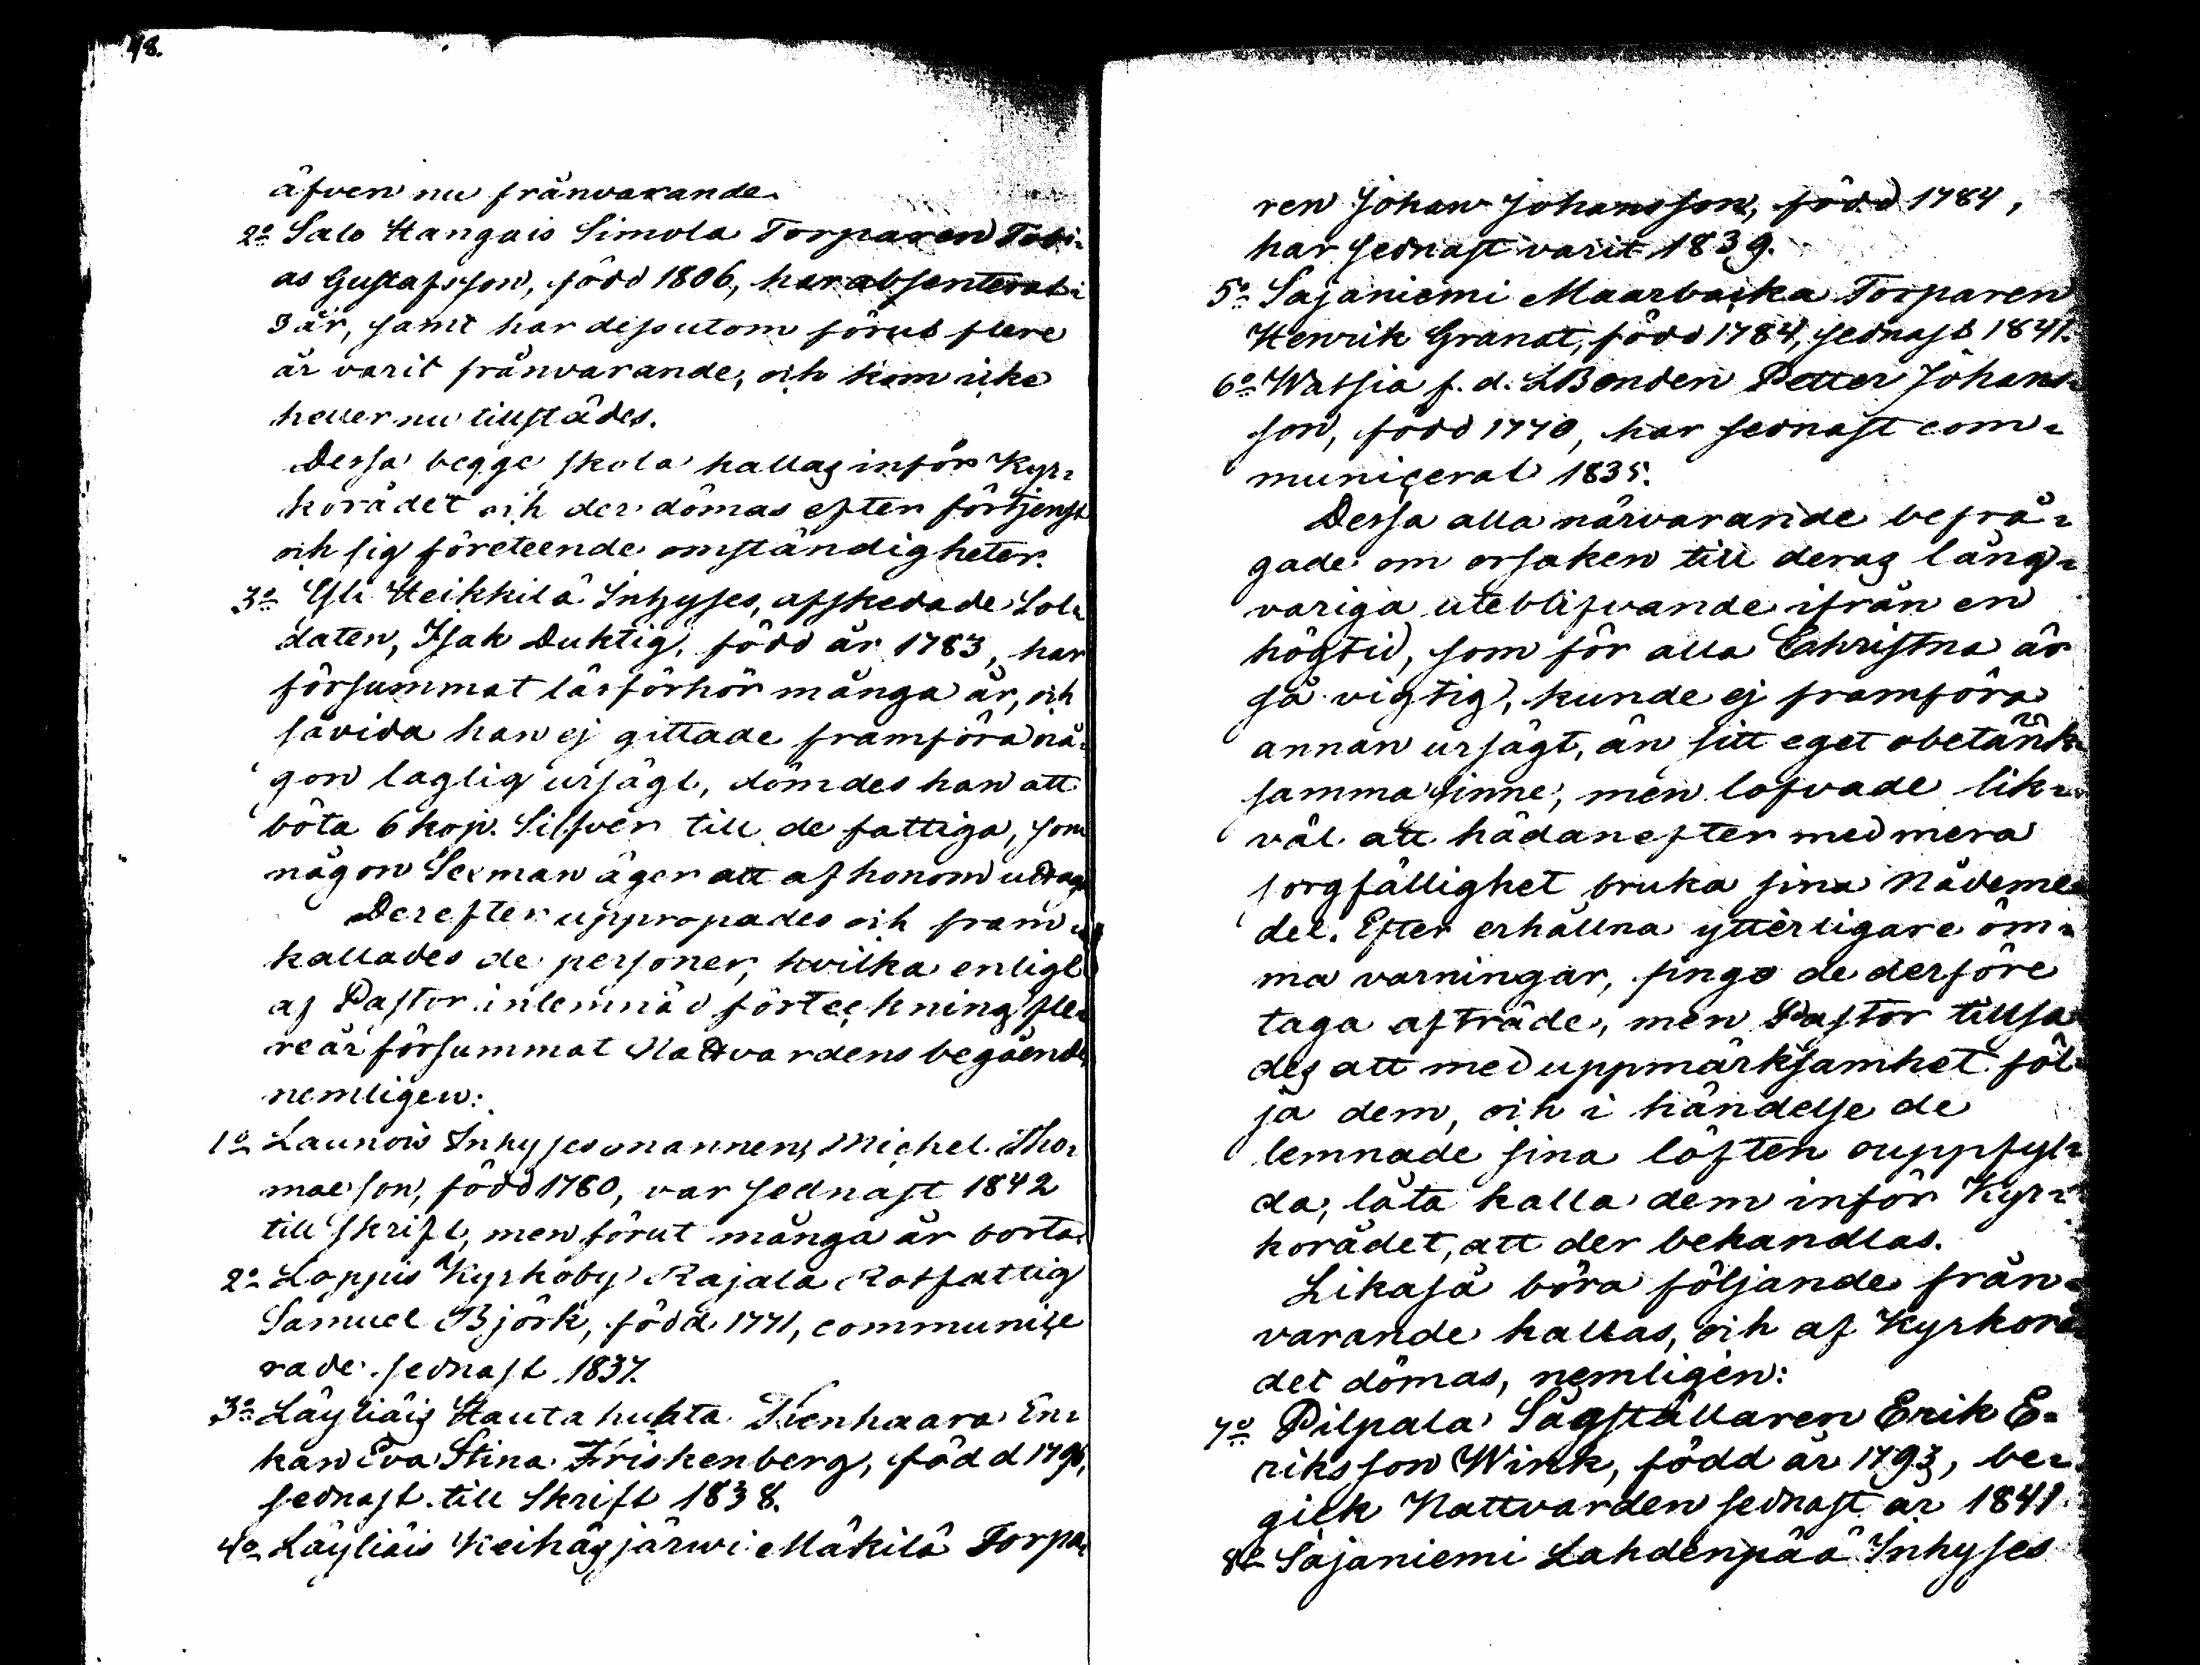 48.
äfven nu frånvarande.
2o Salo Kangais Simola Torparen Tobi-
as Gustafsson, född 1806, har absenterat i
3 år, samt har dessutom förut flere
år varit frånvarande, och kom icke
heller nu tillstädes.
Dessa begge skola kallas inför Kyr-
korådet och der dömas efter förtjenst
och sig företeende omständigheter.
3o Yli Heikkilä Inhyses, afskedade Sol-
daten, Isak Duktig, född år 1783, har
försummat läsförhör många år, och
såvida han ej gittade framföra nå-
gon laglig ursägt, dömdes han att
böta 6 kop. Silfver till de fattiga, som
någon Sexman äger att af honom uttaga
Derefter uppropades och fram-
kallades de personer, hvilka enligt
af Pastor inlemnad förteckning fle-
re år försummat Nattvardens begående
nemligen:
1o Launois Inhysesmannen, Michel Tho-
masson, född 1780, var sednast 1842
till skrift, men förut många år borta.
2o Loppis Kyrkoby Rajala Rotfattig
Samuel Björk, född 1771, communice
rade sednast 1837.
3o Läyliäis Hautahuhta Kenhaara En-
kan Eva Stina Friskenberg, född 1796,
sednast till Skrift 1838.
4o Läyliäis Keihäsjärwi Mäkilä Torpa-
ren Johan Johansson, född 1784,
har sednast varit 1839.
5o Sajaniemi Maarbacka Torparen
Henrik Granat, född 1784, sednast 1841.
6o Watsia f. d. LBonden Petter Johans-
son, född 1770, har sednast com-
municerat 1835.
Dessa alla närvarande befrå-
gade om orsaken till deras lång-
variga uteblifvande ifrån en
högtid, som för alla Christna är
så vigtig, kunde ej framföra
annan ursägt, än sitt eget obetänk-
samma sinne, men lofvade lik-
väl att hädanefter med mera
sorgfällighet bruka sina Nådeme-
del. Efter erhållna ytterligare öm-
ma varningar, fingo de derföre
taga afträde, men Pastor tillsa
des att med uppmärksamhet föl-
ja dem, och i händelse de
lemnade sina löften ouppfyl-
da, låta kalla dem inför Kyr-
korådet, att der behandlas.
Likaså böra följande från-
varande kallas, och af Kyrkorå-
det dömas, nemligen:
7o Pilpala Sågställaren Erik E-
riksson Wink, född år 1793, be-
gick Nattvarden sednast år 1841
8o Sajaniemi Lahdenpää Inhyses